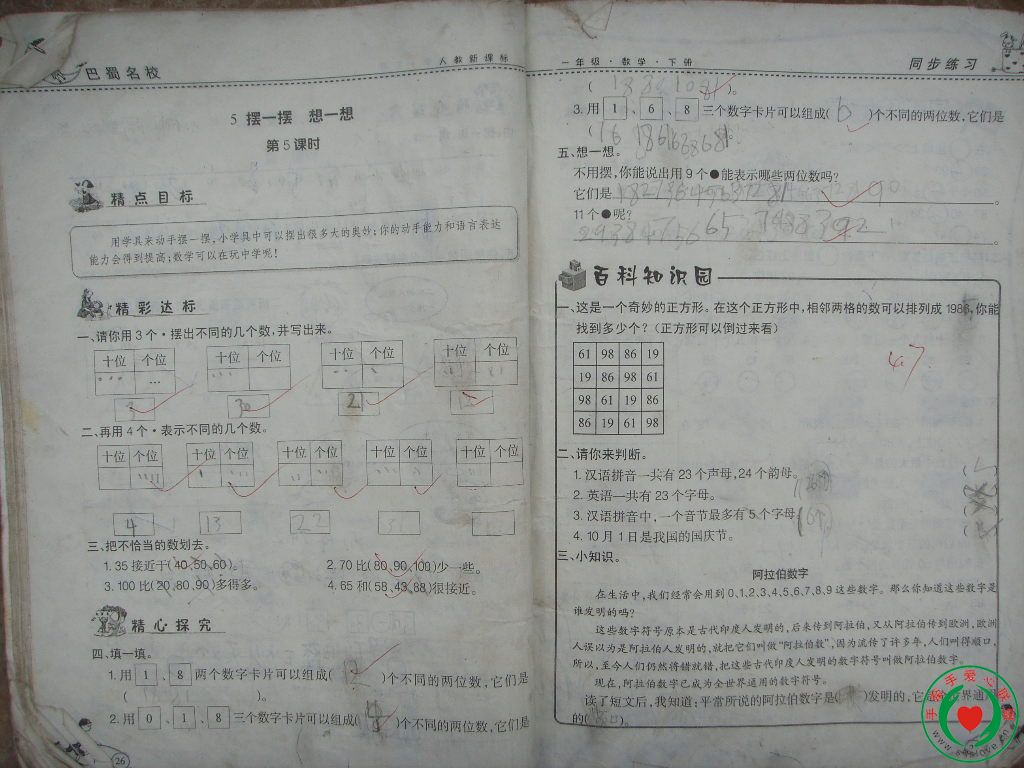 巴蜀名校
人教新课标
5 摆一摆 想一想
第5课时
精点目标
用学具来动手摆一摆,小学具中可以摆出很多大的奥妙;你的动手能力和语言表达
能力会得到提高;数学可以在玩中学呢!
精彩达标
一、请你用3个·摆出不同的几个数,并写出来。
十位 个位 十位 个位 十位 个位 十位 个位
3 30 2
二、再用4个·表示不同的几个数。
十位 个位 十位 个位 十位 个位 十位 个位 十位 个位
4 13 22 31
三、把不恰当的数划去。
1. 35接近于(40、50、60)。 2. 70比(80、90、100)少一些。
3. 100比(20、80、90)多得多。 4. 65和(58、43、88)很接近。
精心探究
四、填一填。
1. 用 1 、 8 两个数字卡片可以组成( )个不同的两位数,它们是
( )。
2. 用 0 、 1 、 8 三个数字卡片可以组成( )个不同的两位数,它们是
26
一年级·数学·下册
同步练习
( )。
3. 用 1 、 6 、 8 三个数字卡片可以组成( 6 )个不同的两位数,它们是
( )。
五、想一想。
不用摆,你能说出用9个●能表示哪些两位数吗?
它们是 。
11个●呢?
29 38 47 56 65 74 83 92 。
百科知识园
一、这是一个奇妙的正方形。在这个正方形中,相邻两格的数可以排列成1986,你能
找到多少个?(正方形可以倒过来看)
61 98 86 19
19 86 98 61
98 61 19 86
86 19 61 98
二、请你来判断。
1. 汉语拼音一共有23个声母,24个韵母。
2. 英语一共有23个字母。
3. 汉语拼音中,一个音节最多有5个字母。
4. 10月1日是我国的国庆节。
三、小知识。
阿拉伯数字
在生活中,我们经常会用到0、1、2、3、4、5、6、7、8、9这些数字。那么你知道这些数字是
谁发明的吗?
这些数字符号原本是古代印度人发明的,后来传到阿拉伯,又从阿拉伯传到欧洲,欧洲
人误以为是阿拉伯人发明的,就把它们叫做“阿拉伯数”,因为流传了许多年,人们叫得顺口,
所以,至今人们仍然将错就错,把这些古代印度人发明的数字符号叫做阿拉伯数字。
现在,阿拉伯数字已成为全世界通用的数字符号。
读了短文后,我知道:平常所说的阿拉伯数字是( )发明的,它是 世界通
的( )。
手拉手爱心联